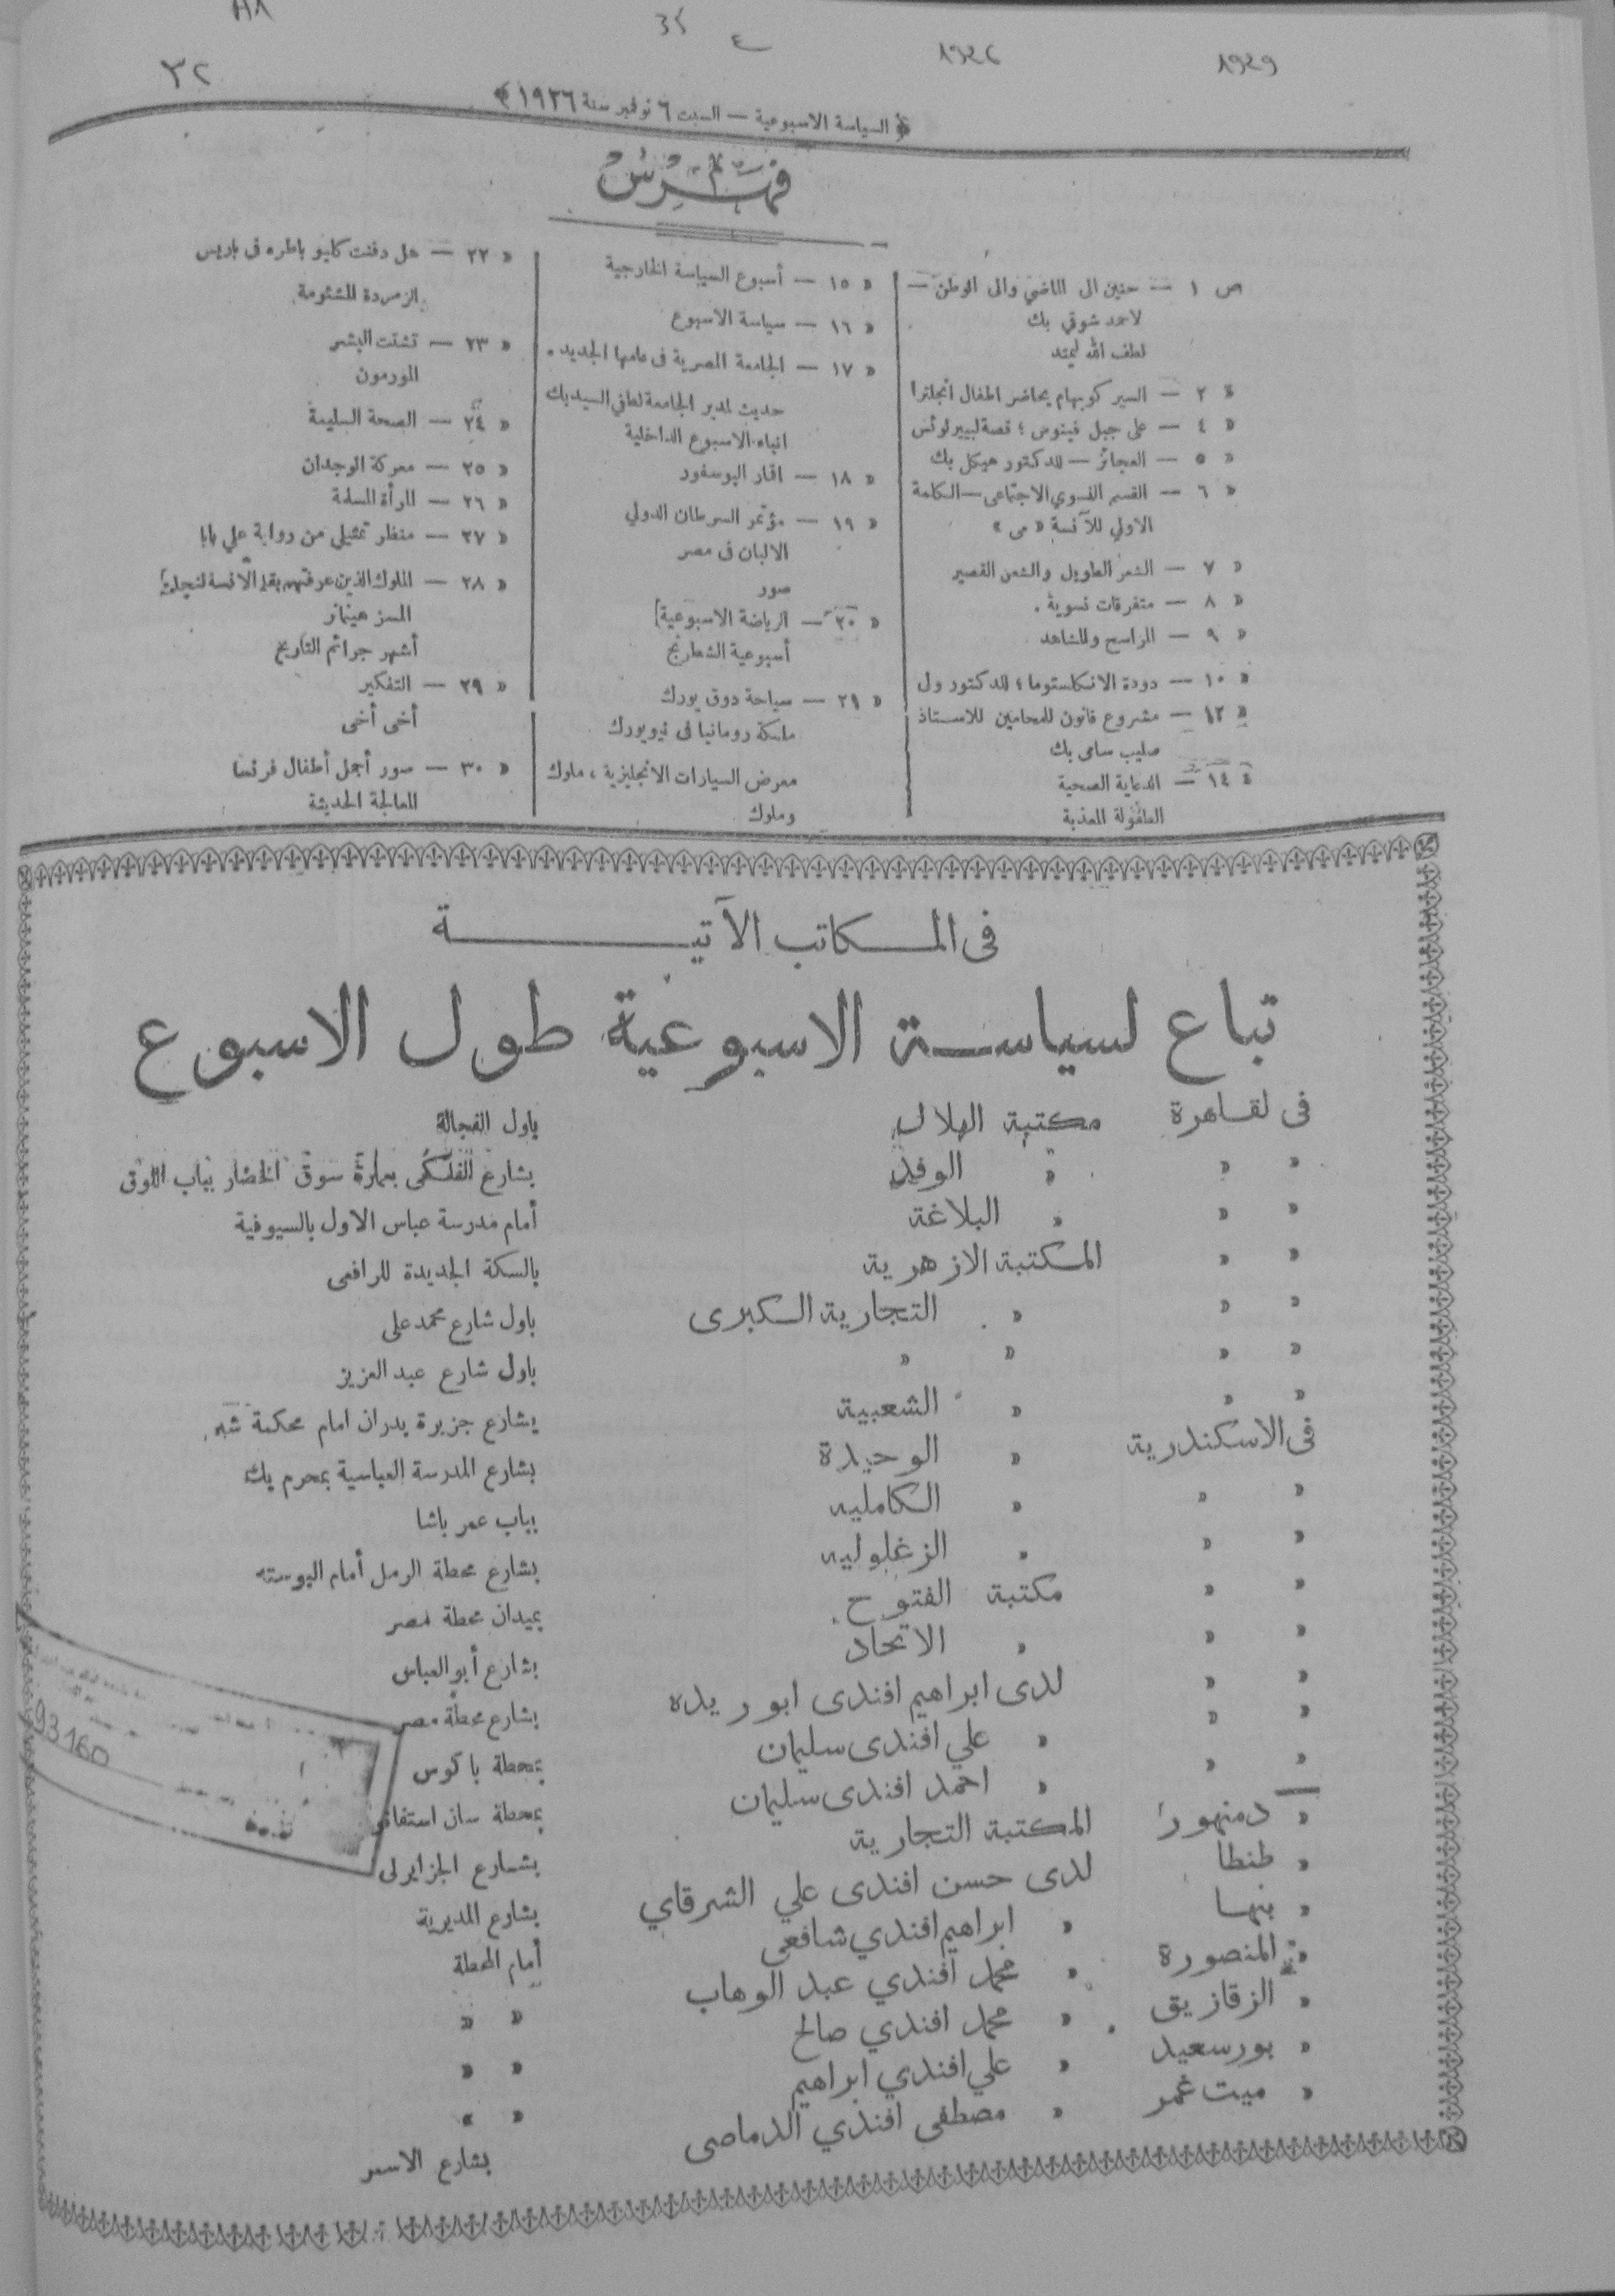 ٣٢
1926
1929
﴿ السياسة الاسبوعية — السبت ٦ نوفمبر سنة ١٩٢٦ ﴾
فهرس
ص ١ — حنين الى الماضي والى الوطن —
لاحمد شوقي بك
لطف الله ليمتد
« ٢ — السير كوبهام يحاضر اطفال انجلترا
« ٤ — على جبل فينوس ؛ قصة لبيير لوئس
« ٥ — العجائز — للدكتور هيكل بك
« ٦ — القسم النسوي الاجتماعى — الكلمة
الاولي للآنسة « مى »
« ٧ — الشعر الطويل والشعر القصير
« ٨ — متفرقات نسوية .
« ٩ — المراسح والمشاهد
« ١٠ — دودة الانكلستوما ؛ للدكتور ول
« ١٢ — مشروع قانون للمحامين للاستاذ
صليب سامى بك
« ١٤ — الدعاية الصحية
الطفولة المعذبة
« ١٥ — أسبوع السياسة الخارجية
« ١٦ — سياسة الاسبوع
« ١٧ — الجامعة المصرية فى عامها الجديد .
حديث لمدير الجامعة لطفي السيد بك
انباء الاسبوع الداخلية
« ١٨ — اقمار البوسفور
« ١٩ — مؤتمر السرطان الدولي
الالبان فى مصر
صور
« ٢٠ — الرياضة الاسبوعية
أسبوعية الشطرنج
« ٢١ — سياحة دوق يورك
ملكة رومانيا فى نيويورك
معرض السيارات الانجليزية ، ملوك
وملوك
« ٢٢ — هل دفنت كليو باطره فى باريس
الزمردة المشئومة
« ٢٣ — تشتت البشر
المورمون
« ٢٤ — الصحة السليمة
« ٢٥ — معركة الوجدان
« ٢٦ — المرأة المسلمة
« ٢٧ — منظر تمثيلى من رواية علي بابا
« ٢٨ — الملوك الذين عرفتهم بقلم الآنسة لنجلت
المسز هينمانز
أشهر جرائم التاريخ
« ٢٩ — التفكير
أخى أخى
« ٣٠ — صور أجمل أطفال فرنسا
المعالجة الحديثة
فى المكاتب الآتية
تباع لسياسة الاسبوعية طول الاسبوع
فى لقاهرة مكتبة الهلال باول الفجالة
« « « الوفد بشارع الفلكى بعمارة سوق الخضار بباب اللوق
« « « البلاغة أمام مدرسة عباس الاول بالسيوفية
« « المكتبة الازهرية بالسكة الجديدة للرافعى
« « « التجارية الكبرى باول شارع محمد على
« « « « باول شارع عبد العزيز
« « « الشعبية بشارع جزيرة بدران امام محكمة
فى الاسكندرية « الوحيدة بشارع المدرسة العباسية بمحرم بك
« « « الكامليه بباب عمر باشا
« « « الزغلوليه بشارع محطة الرمل أمام البوسته
« « مكتبة الفتوح بميدان محطة مصر
« « « الاتحاد بشارع أبو العباس
« « لدى ابراهيم افندى ابو ريده بشارع محطة مصر
« « « علي افندى سليمان بمحطة باكوس
« « « احمد افندى سليمان بمحطة سان استفانو
« دمنهور المكتبة التجارية بشارع الجزايرلى
« طنطا لدى حسن افندى علي الشرقاي بشارع المديرية
« بنها « ابراهيم افندي شافعي أمام المحطة
« المنصورة « محمد افندي عبد الوهاب « «
« الزقازيق « محمد افندي صالح « «
« بور سعيد « علي افندي ابراهيم « «
« ميت غمر « مصطفى افندي الدماصى بشارع الاسمر
93160